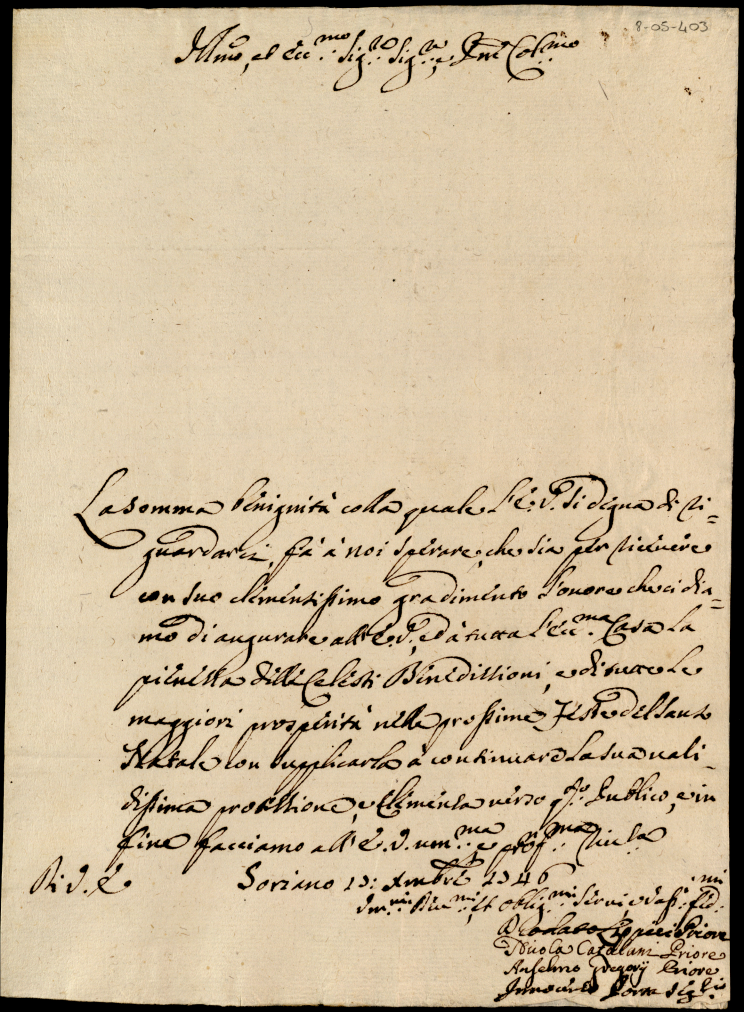 8-05-403
Illmo, et Ecc.mo Sig.re Sig.re, e Pne Col.mo
La somma benignità colla quale L'E.V. si degna di ri=
guardarci, fà à noi sperare, che sia per ricevere
con suo clementissimo gradimento l'onore che ci dia=
mo di augurare all'E.V., ed à tutta l'Ecc.ma Casa la
pienezza delle Celesti Benedittioni, e di tutte le
maggiori prosperità nelle prossime Feste del Santo
Natale con supplicarla à continuare la sua vali-
dissima protettione, e Clemenza verso q.to Publico, e in
fine facciamo all'E.V. um.ma e prof.ma riv.za
Di V.E.
Soriano 13: Xmbre 1746
Um.mi Dev.mi, et Oblig.mi Servi
Priore
Nicola Catalani Priore
Anselmo Gregorij Priore
Innocenzo Porta Seg.rio